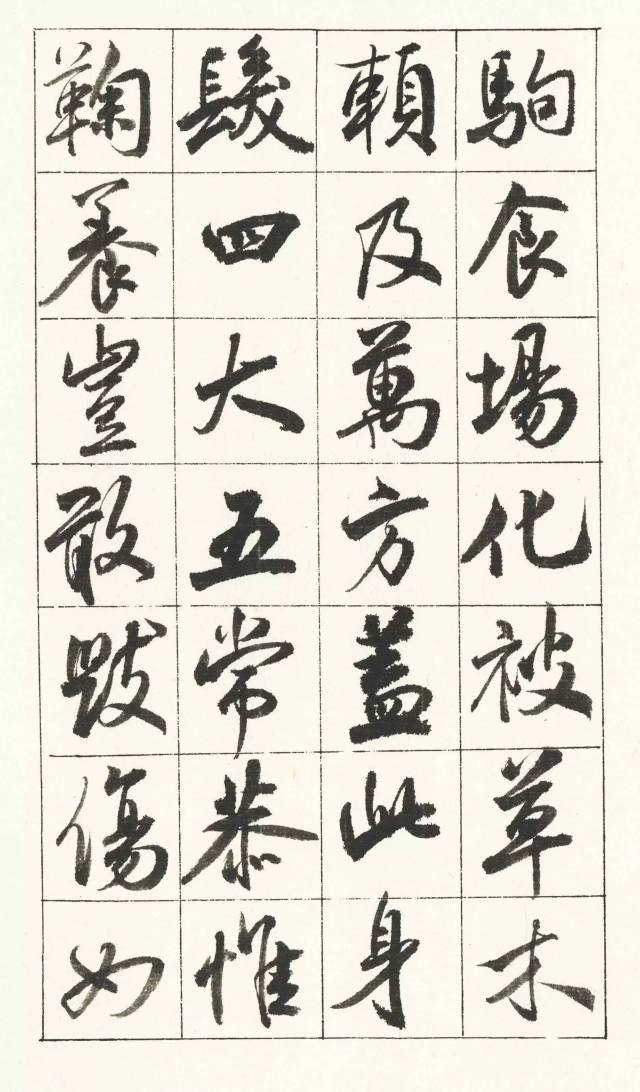 駒食場化被草木
賴及萬方蓋此身
髮四大五常恭惟
鞠養豈敢毀傷女